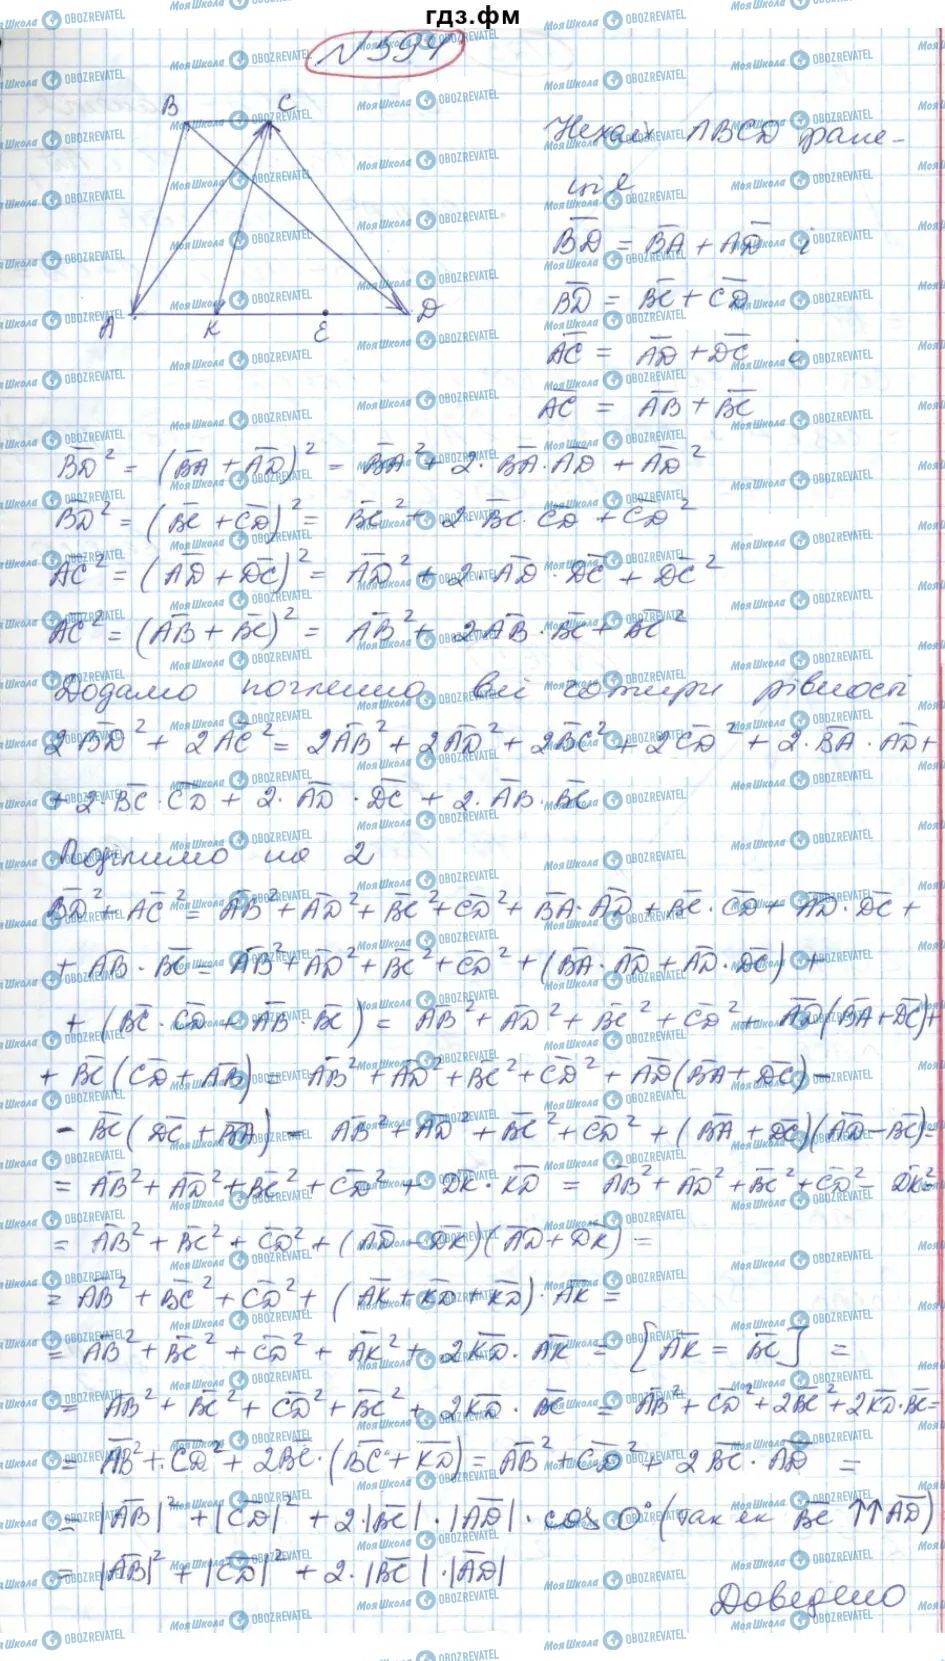 гдз.фм
№ 594
B C
A K E D
Нехай ABCD трапе-
ція
BD̅ = BA̅ + AD̅ і
BD̅ = BC̅ + CD̅
AC̅ = AD̅ + DC̅ і
AC̅ = AB̅ + BC̅
BD̅² = (BA̅ + AD̅)² = BA̅² + 2·BA̅·AD̅ + AD̅²
BD̅² = (BC̅ + CD̅)² = BC̅² + 2·BC̅·CD̅ + CD̅²
AC̅² = (AD̅ + DC̅)² = AD̅² + 2·AD̅·DC̅ + DC̅²
AC̅² = (AB̅ + BC̅)² = AB̅² + 2AB̅·BC̅ + BC̅²
Додамо почленно всі чотири рівності
2BD̅² + 2AC̅² = 2AB̅² + 2AD̅² + 2BC̅² + 2CD̅² + 2·BA̅·AD̅ +
+ 2·BC̅·CD̅ + 2·AD̅·DC̅ + 2·AB̅·BC̅
Поділимо на 2
BD̅² + AC̅² = AB̅² + AD̅² + BC̅² + CD̅² + BA̅·AD̅ + BC̅·CD̅ + AD̅·DC̅ +
+ AB̅·BC̅ = AB̅² + AD̅² + BC̅² + CD̅² + (BA̅·AD̅ + AD̅·DC̅) +
+ (BC̅·CD̅ + AB̅·BC̅) = AB̅² + AD̅² + BC̅² + CD̅² + AD̅(BA̅ + DC̅) +
+ BC̅(CD̅ + AB̅) = AB̅² + AD̅² + BC̅² + CD̅² + AD̅(BA̅ + DC̅) -
- BC̅(DC̅ + BA̅) = AB̅² + AD̅² + BC̅² + CD̅² + (BA̅ + DC̅)(AD̅ - BC̅) =
= AB̅² + AD̅² + BC̅² + CD̅² + DK̅·KD̅ = AB̅² + AD̅² + BC̅² + CD̅² - DK̅² =
= AB̅² + BC̅² + CD̅² + (AD̅ - DK̅)(AD̅ + DK̅) =
= AB̅² + BC̅² + CD̅² + (AK̅ + KD̅ + KD̅)·AK̅ =
= AB̅² + BC̅² + CD̅² + AK̅² + 2KD̅·AK̅ = [AK̅ = BC̅] =
= AB̅² + BC̅² + CD̅² + BC̅² + 2KD̅·BC̅ = AB̅² + CD̅² + 2BC̅² + 2KD̅·BC̅ =
= AB̅² + CD̅² + 2BC̅·(BC̅ + KD̅) = AB̅² + CD̅² + 2BC̅·AD̅ =
= |AB̅|² + |CD̅|² + 2·|BC̅|·|AD̅|·cos 0° (так як BC̅ ↑↑ AD̅)
= |AB̅|² + |CD̅|² + 2·|BC̅|·|AD̅|
Доведено